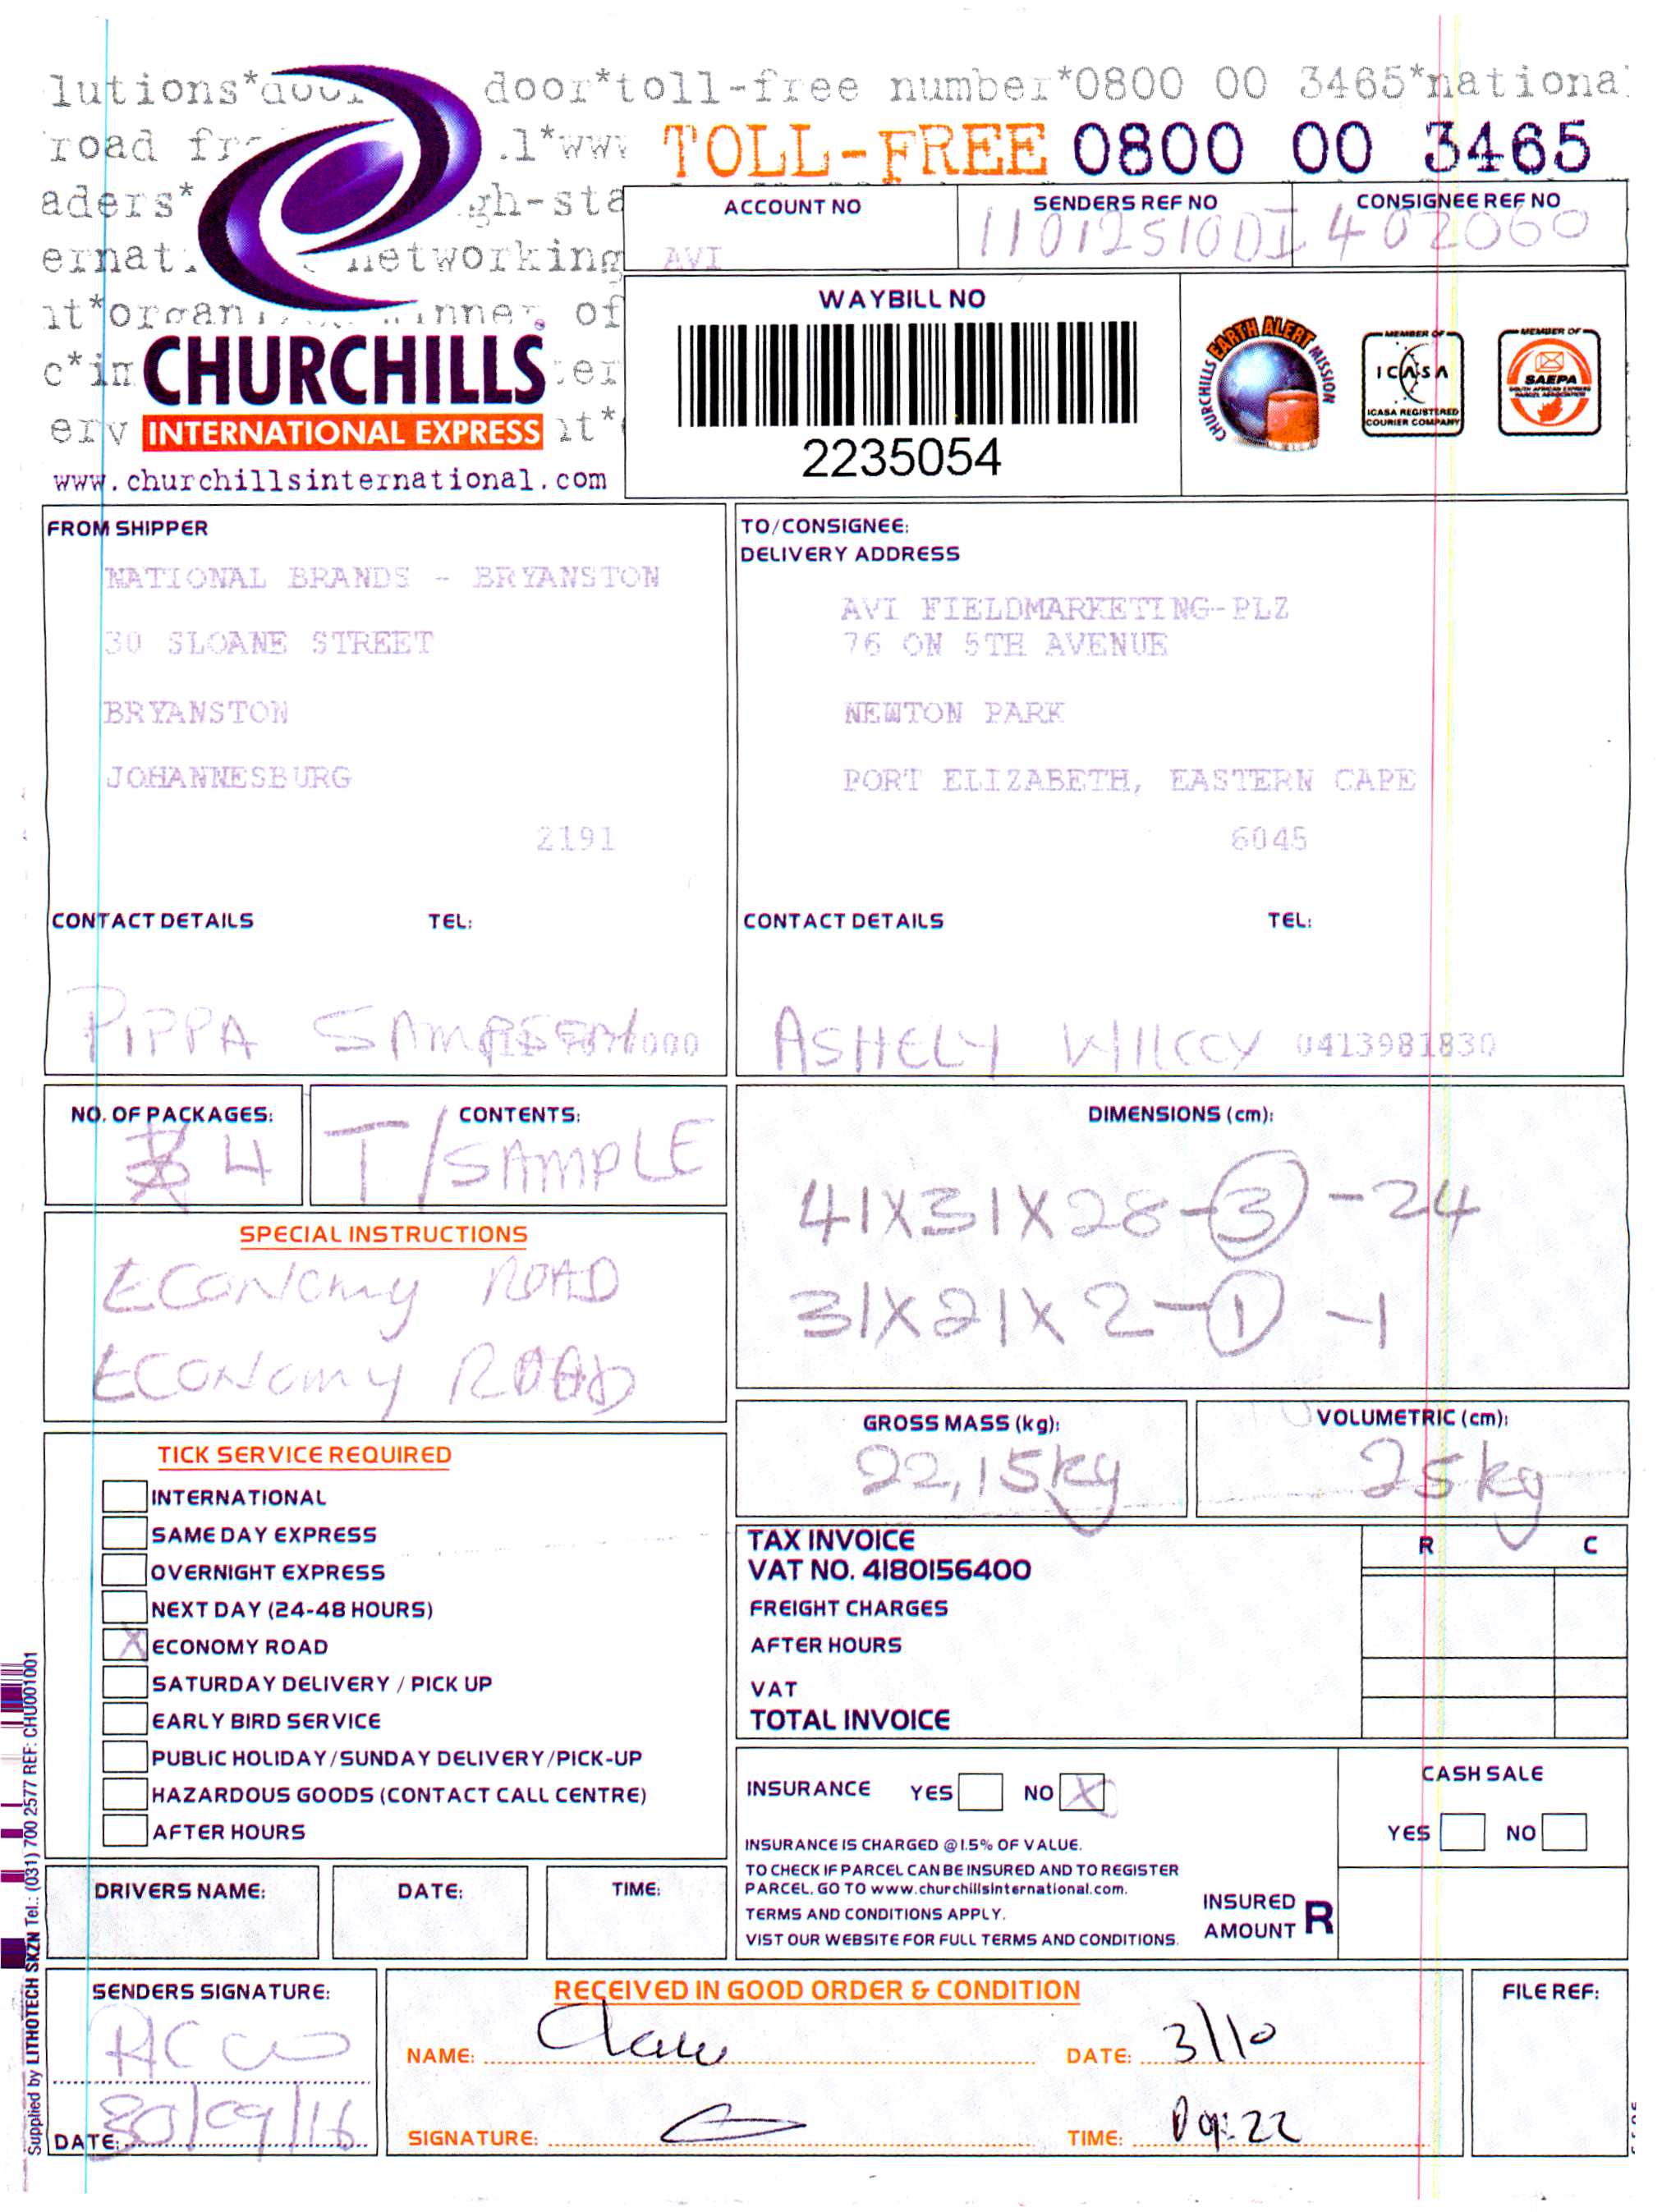 door*toll-free number*0800 00 3465*nationa
lutions*
road
aders*
networking
TOLL-FREE 0800 00 3465
ACCOUNT NO
AVI
SENDERS REF NO
CONSIGNEE REF NO
11012510DI402060
CHURCHILLS
INTERNATIONAL EXPRESS
www.churchillsinternational.com
WAYBILL NO
2235054
CHURCHILLS EARTH ALERT MISSION
MEMBER OF
ICASA
ICASA REGISTERED
COURIER COMPANY
MEMBER OF
SAEPA
SOUTH AFRICAN EXPRESS
PARCEL ASSOCIATION
FROM SHIPPER
NATIONAL BRANDS - BRYANSTON
30 SLOANE STREET
BRYANSTON
JOHANNESBURG
2191
CONTACT DETAILS TEL:
PIPPA SAMPSON
TO/CONSIGNEE:
DELIVERY ADDRESS
AVI FIELDMARKETING-PLZ
76 ON 5TH AVENUE
NEWTON PARK
PORT ELIZABETH, EASTERN CAPE
6045
CONTACT DETAILS TEL:
ASHELY WILCCY 0413981830
NO. OF PACKAGES:
4
CONTENTS:
T/SAMPLE
DIMENSIONS (cm):
41X31X28-3-24
31X21X2-1-1
SPECIAL INSTRUCTIONS
ECONOMY ROAD
ECONOMY ROAD
GROSS MASS (kg):
22,15kg
VOLUMETRIC (cm):
25kg
TICK SERVICE REQUIRED
INTERNATIONAL
SAME DAY EXPRESS
OVERNIGHT EXPRESS
NEXT DAY (24-48 HOURS)
X ECONOMY ROAD
SATURDAY DELIVERY / PICK UP
EARLY BIRD SERVICE
PUBLIC HOLIDAY/SUNDAY DELIVERY/PICK-UP
HAZARDOUS GOODS (CONTACT CALL CENTRE)
AFTER HOURS
TAX INVOICE
VAT NO. 4180156400
R C
FREIGHT CHARGES
AFTER HOURS
VAT
TOTAL INVOICE
INSURANCE YES NO X
INSURANCE IS CHARGED @ 1.5% OF VALUE.
TO CHECK IF PARCEL CAN BE INSURED AND TO REGISTER
PARCEL. GO TO www.churchillsinternational.com.
TERMS AND CONDITIONS APPLY.
VIST OUR WEBSITE FOR FULL TERMS AND CONDITIONS.
INSURED
AMOUNT R
CASH SALE
YES NO
DRIVERS NAME:
DATE:
TIME:
SENDERS SIGNATURE:
DATE: 30/09/16
RECEIVED IN GOOD ORDER & CONDITION
NAME:
DATE: 3/10
SIGNATURE:
TIME: 09:22
FILE REF:
Supplied by LITHOTECH SKZN Tel.: (031) 700 2577 REF: CHU001001